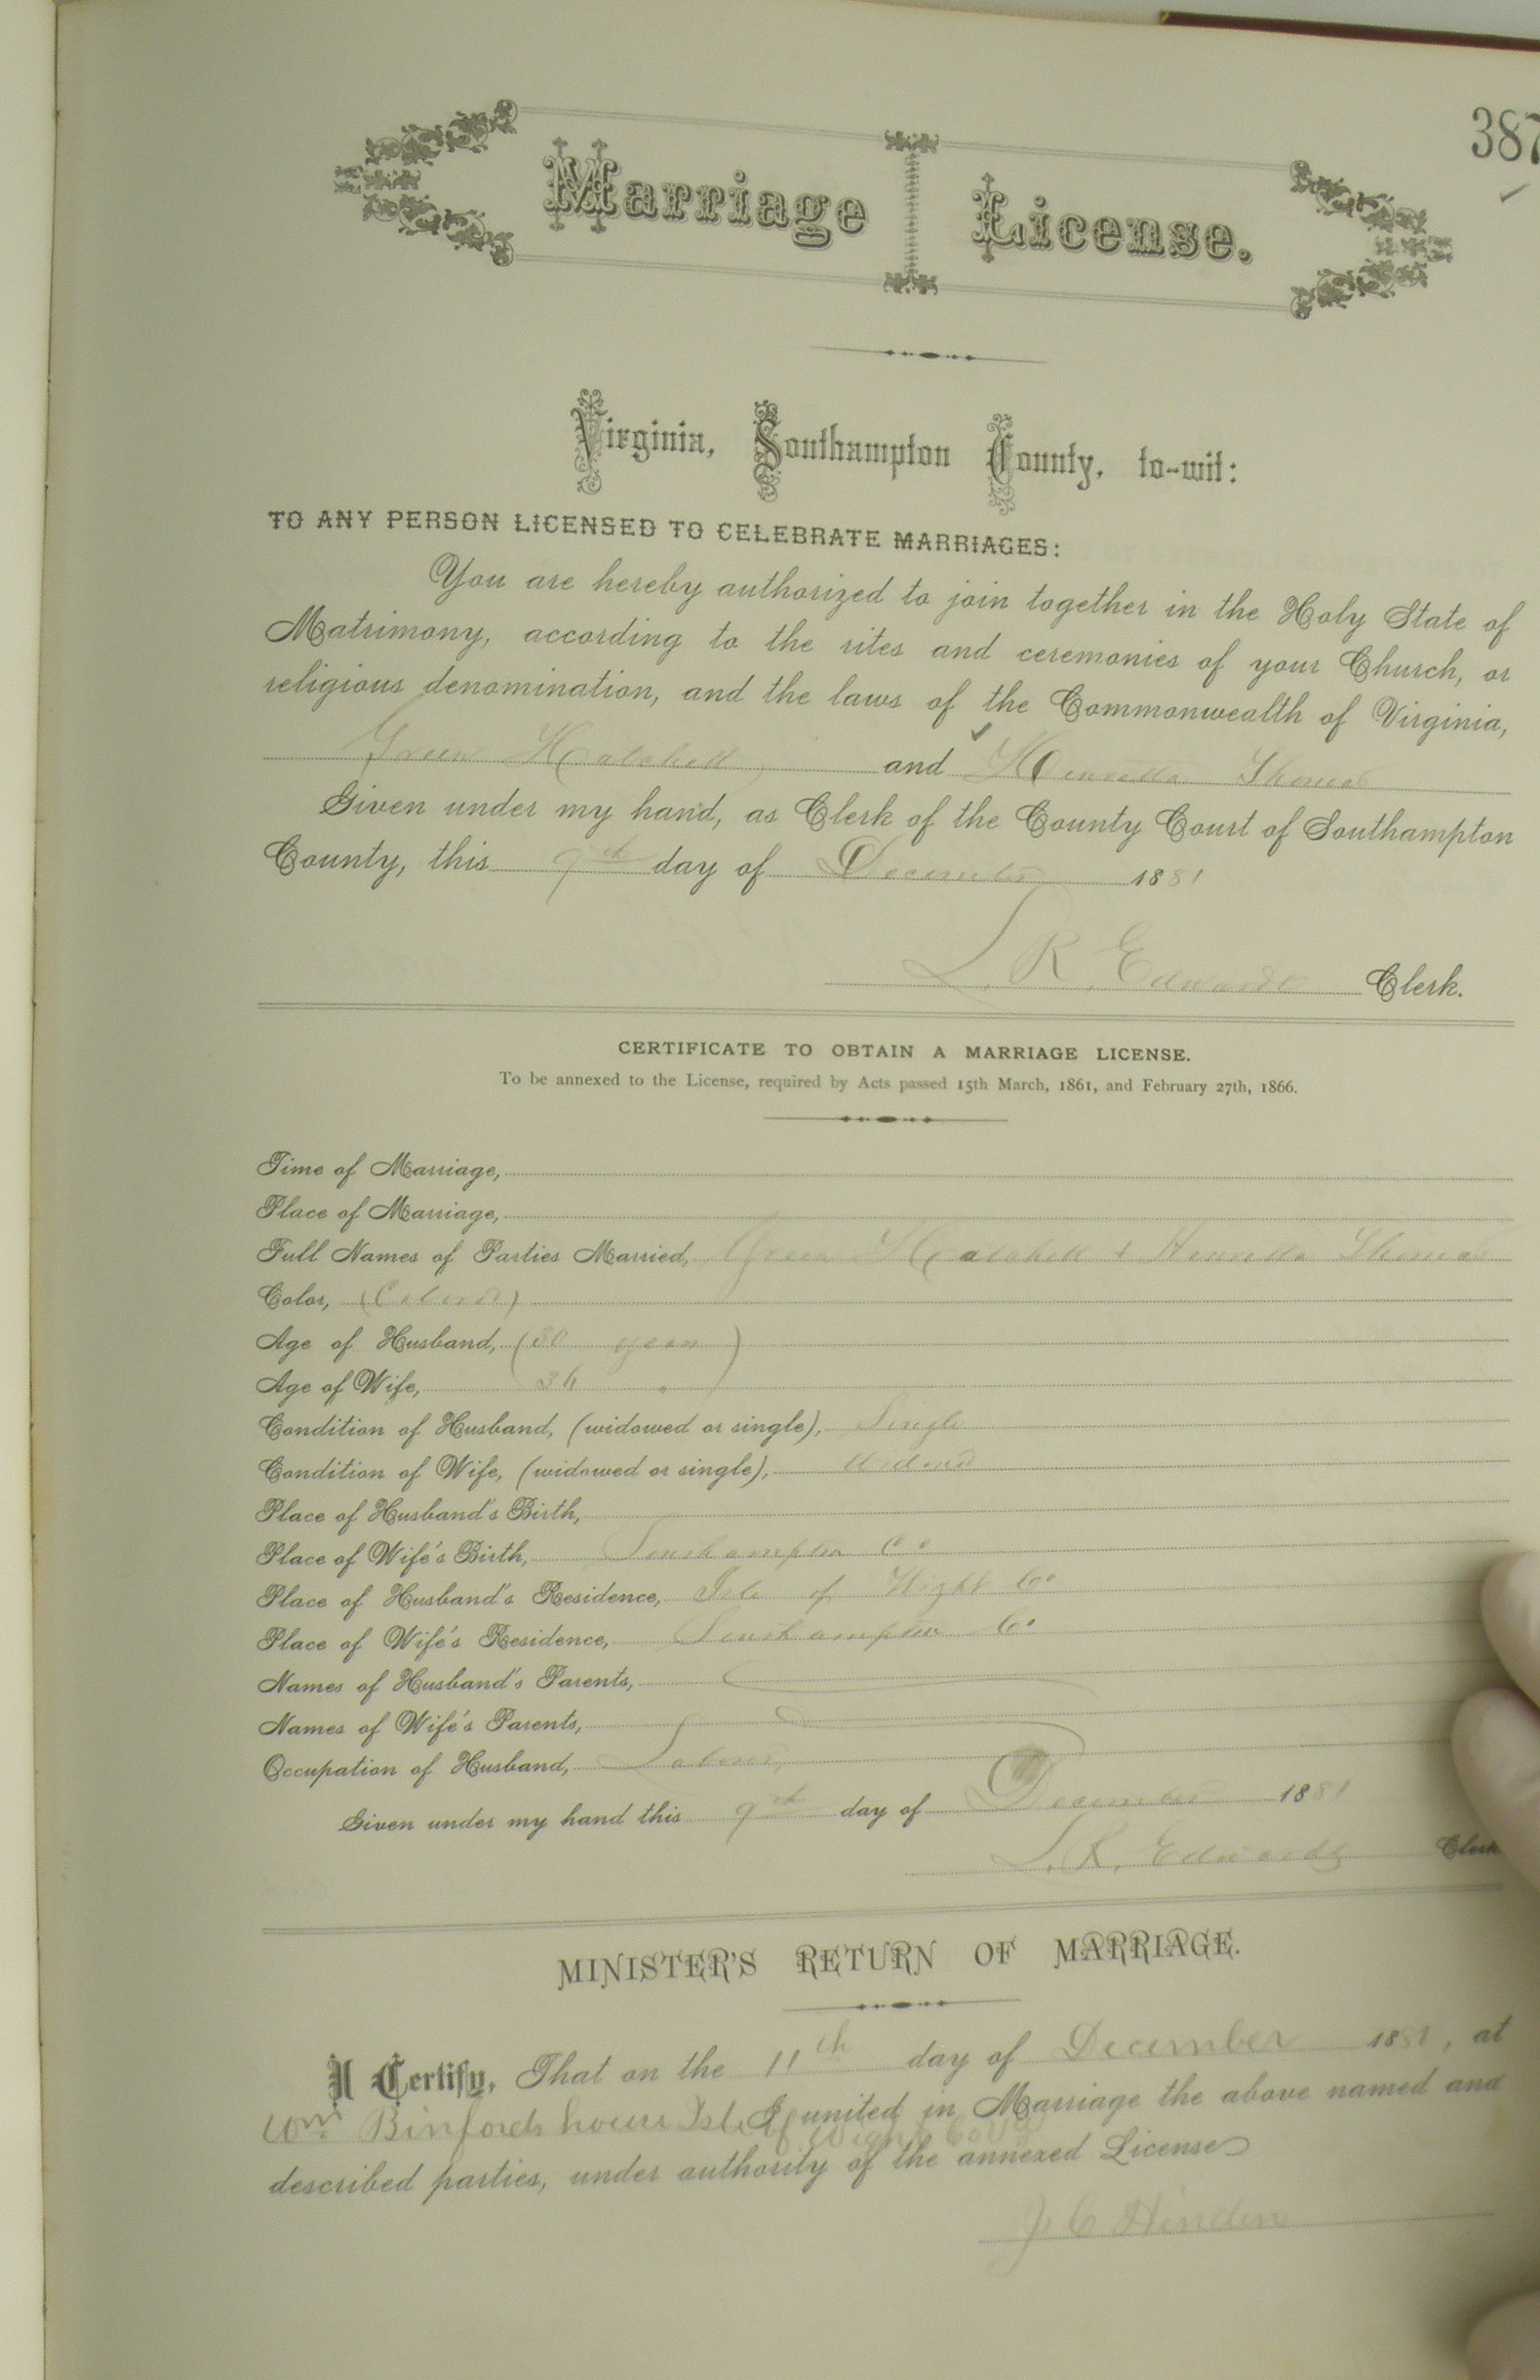 387
Marriage License.
Virginia, Southampton County, to-wit:
TO ANY PERSON LICENSED TO CELEBRATE MARRIAGES:
You are hereby authorized to join together in the Holy State of
Matrimony, according to the rites and ceremonies of your Church, or
religious denomination, and the laws of the Commonwealth of Virginia,
Green Hatchell and Henrietta Thomas
Given under my hand, as Clerk of the County Court of Southampton
County, this 9th day of December 1881
L. R. Edwards Clerk.
CERTIFICATE TO OBTAIN A MARRIAGE LICENSE.
To be annexed to the License, required by Acts passed 15th March, 1861, and February 27th, 1866.
Time of Marriage,
Place of Marriage,
Full Names of Parties Married, Green Hatchell & Henrietta Thomas
Color, (Colored)
Age of Husband, (30 years)
Age of Wife, 36 "
Condition of Husband, (widowed or single), Single
Condition of Wife, (widowed or single), Widowed
Place of Husband's Birth,
Place of Wife's Birth, Southampton Co
Place of Husband's Residence, Isle of Wight Co
Place of Wife's Residence, Southampton Co
Names of Husband's Parents,
Names of Wife's Parents,
Occupation of Husband, Laborer
Given under my hand this 9th day of December 1881
L. R. Edwards Clerk
MINISTER'S RETURN OF MARRIAGE.
I Certify, That on the 11th day of December 1881, at
Wm Binfords house Isle of Wight Co Va I united in Marriage the above named and
described parties, under authority of the annexed License
J. C. Hinden